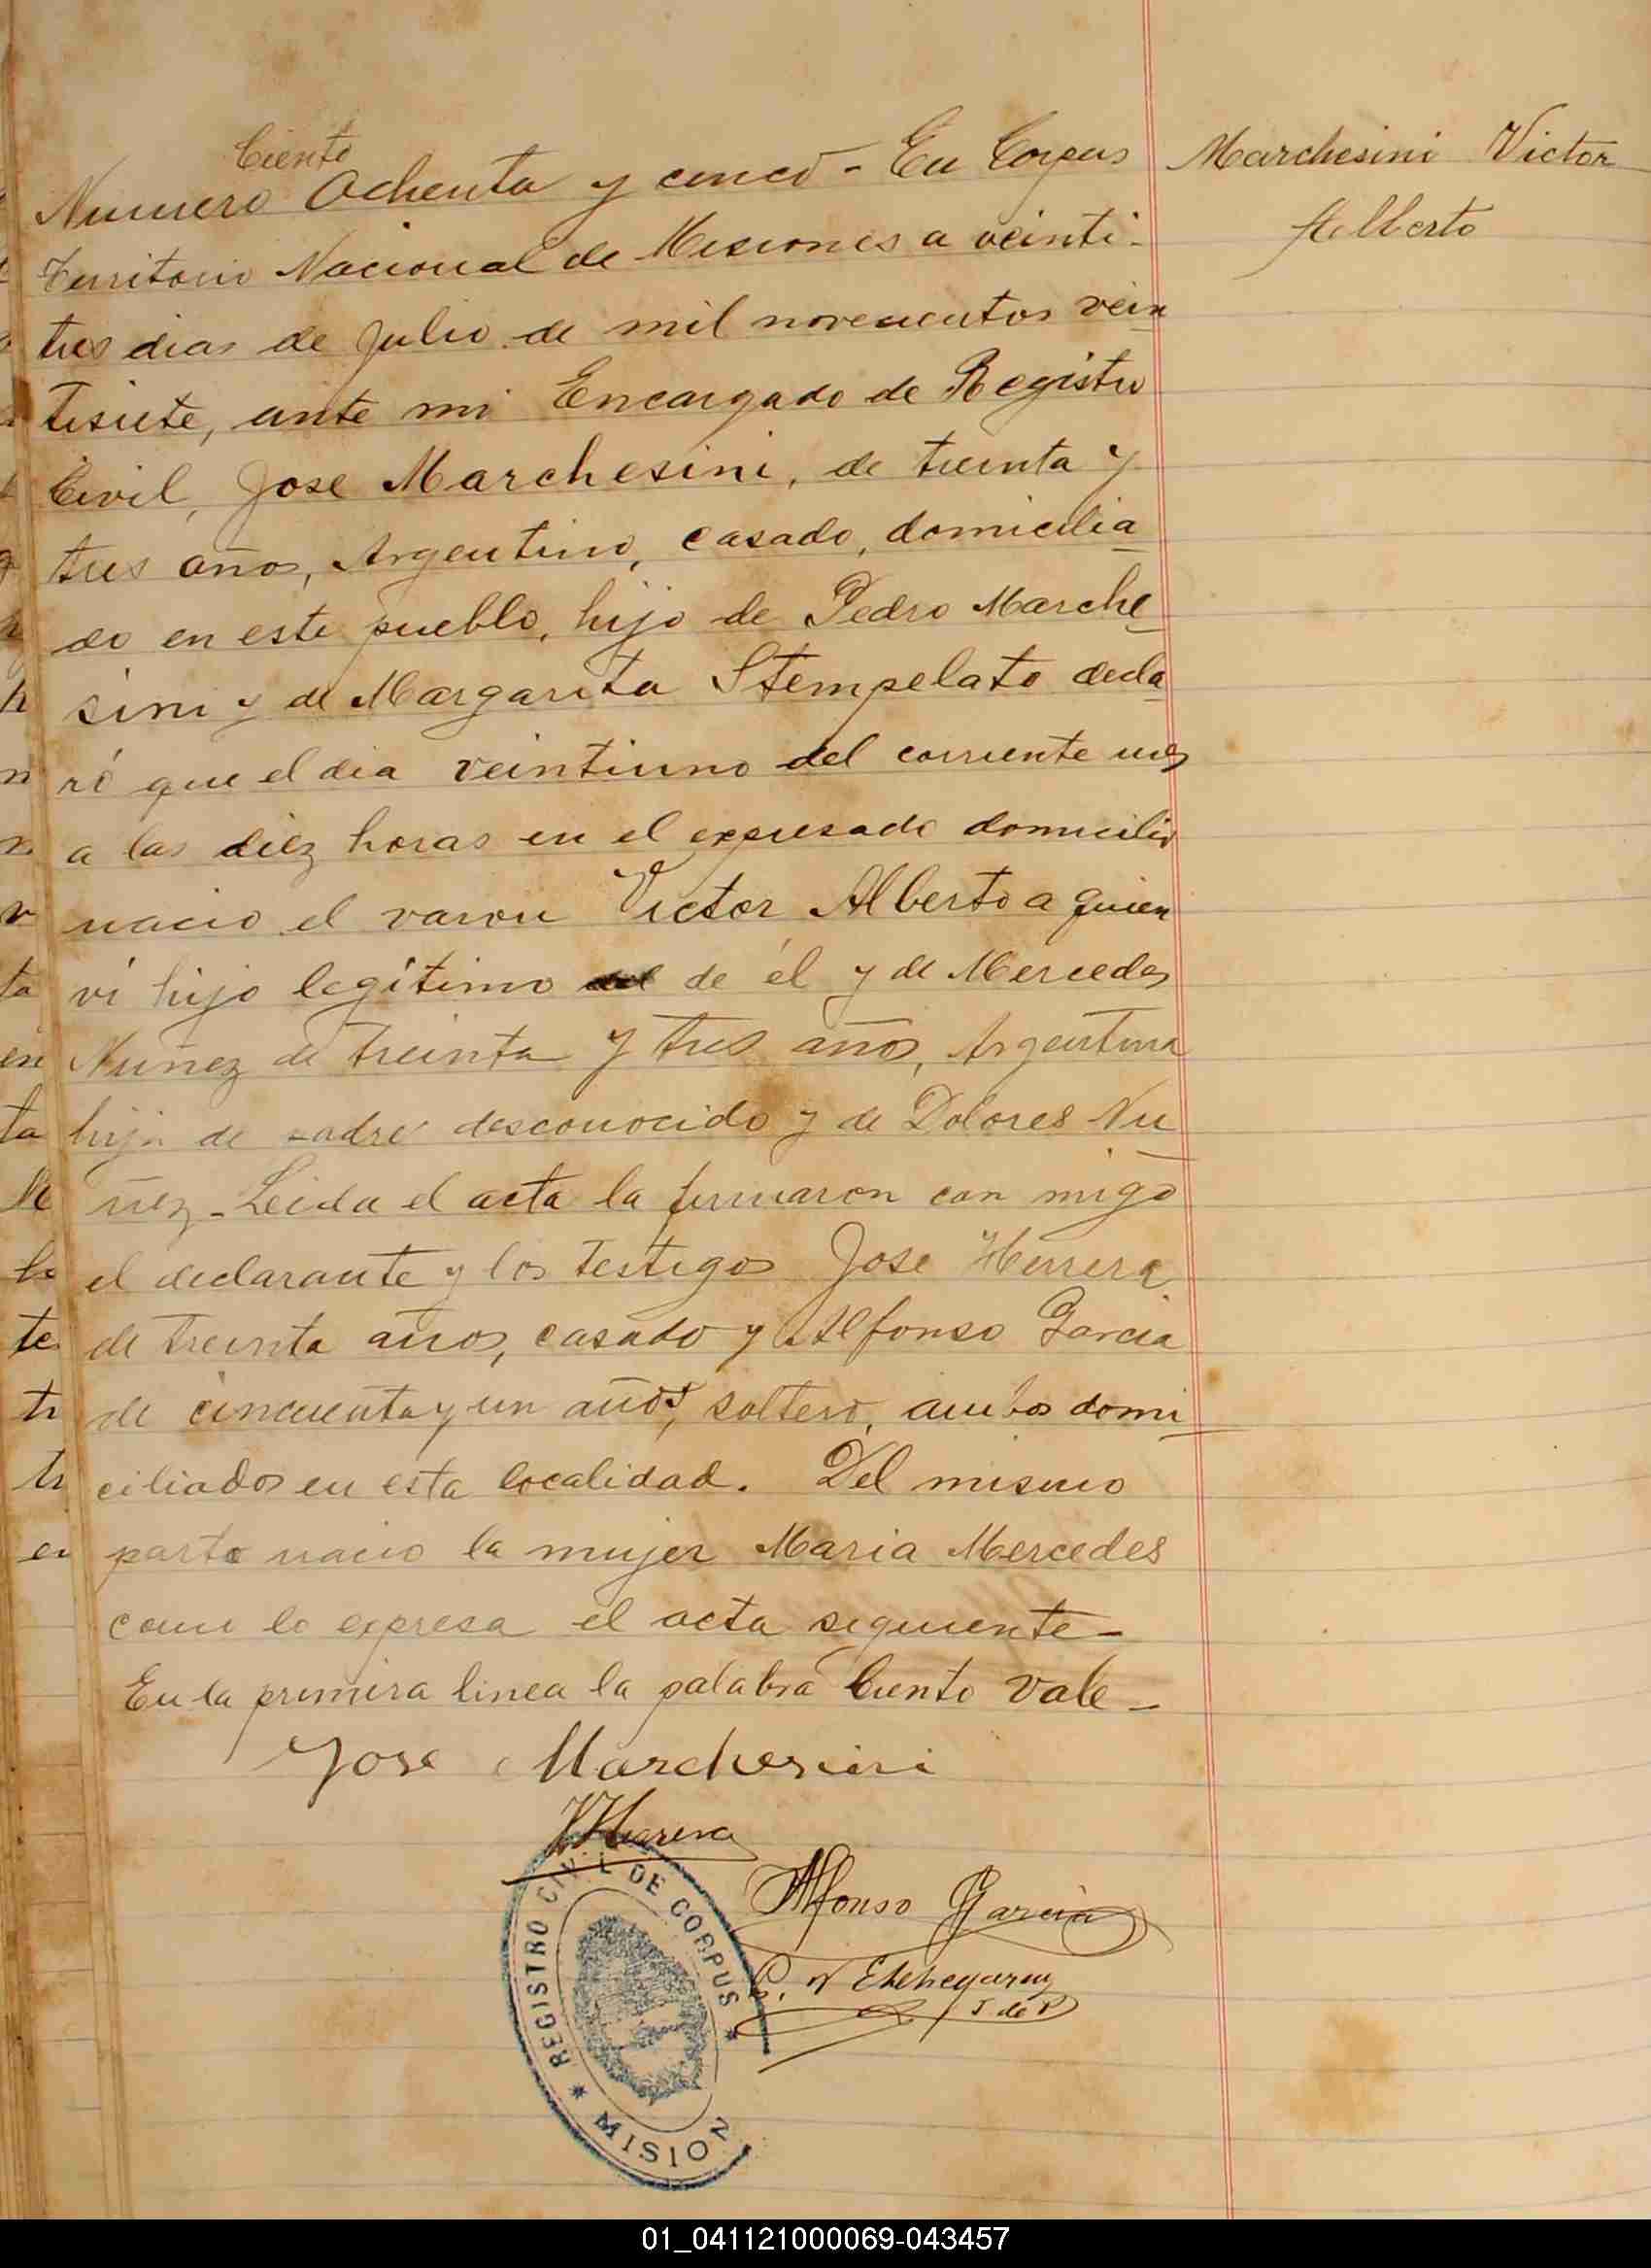 Ciento
Numero Ochenta y cinco - En Corpus
Territorio Nacional de Misiones a veinti-
tres dias de Julio de mil novecientos vein
tisiete, ante mi Encargado de Registro
Civil, Jose Marchesini, de treinta y
tres años, Argentino, casado, domicilia
do en este pueblo, hijo de Pedro Marche
sini y de Margarita Stempelato decla
ró que el dia veintiuno del corriente mes
a las diez horas en el expresado domicilio
nacio el varon Victor Alberto a quien
vi hijo legítimo de él y de Mercedes
Nuñez de treinta y tres años, Argentina
hija de padre desconocido y de Dolores Nu
ñez - Leida el acta la firmaron con migo
el declarante y los testigos Jose Herrera
de treinta años, casado y Alfonso Garcia
de cincuenta y un años, soltero, ambos domi
ciliados en esta localidad. Del mismo
parto nacio la mujer Maria Mercedes
como lo expresa el acta siguiente -
En la primera linea la palabra Ciento vale -
Jose Marchesini
J Herrera
Alfonso Garcia
Etchegaray
J de P
REGISTRO CIVIL DE CORPUS
MISION
Marchesini Victor
Alberto
01_041121000069-043457